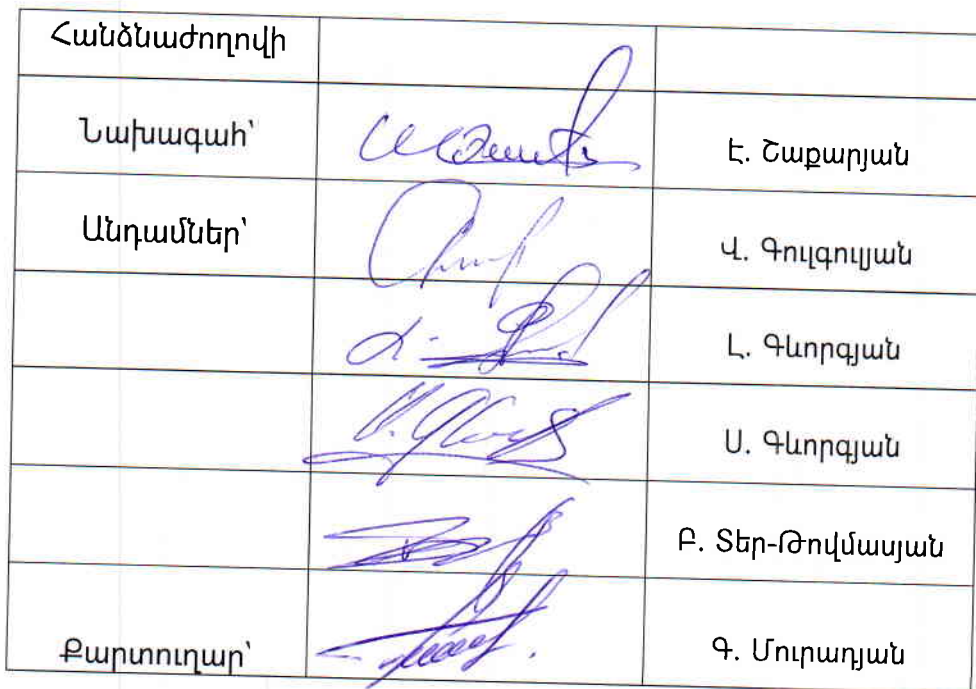 Հանձնաժողովի
Նախագահ՝ Է. Շաքարյան
Անդամներ՝ Վ. Գուլգուլյան
Լ. Գևորգյան
Ս. Գևորգյան
Բ. Տեր-Թովմասյան
Քարտուղար՝ Գ. Մուրադյան